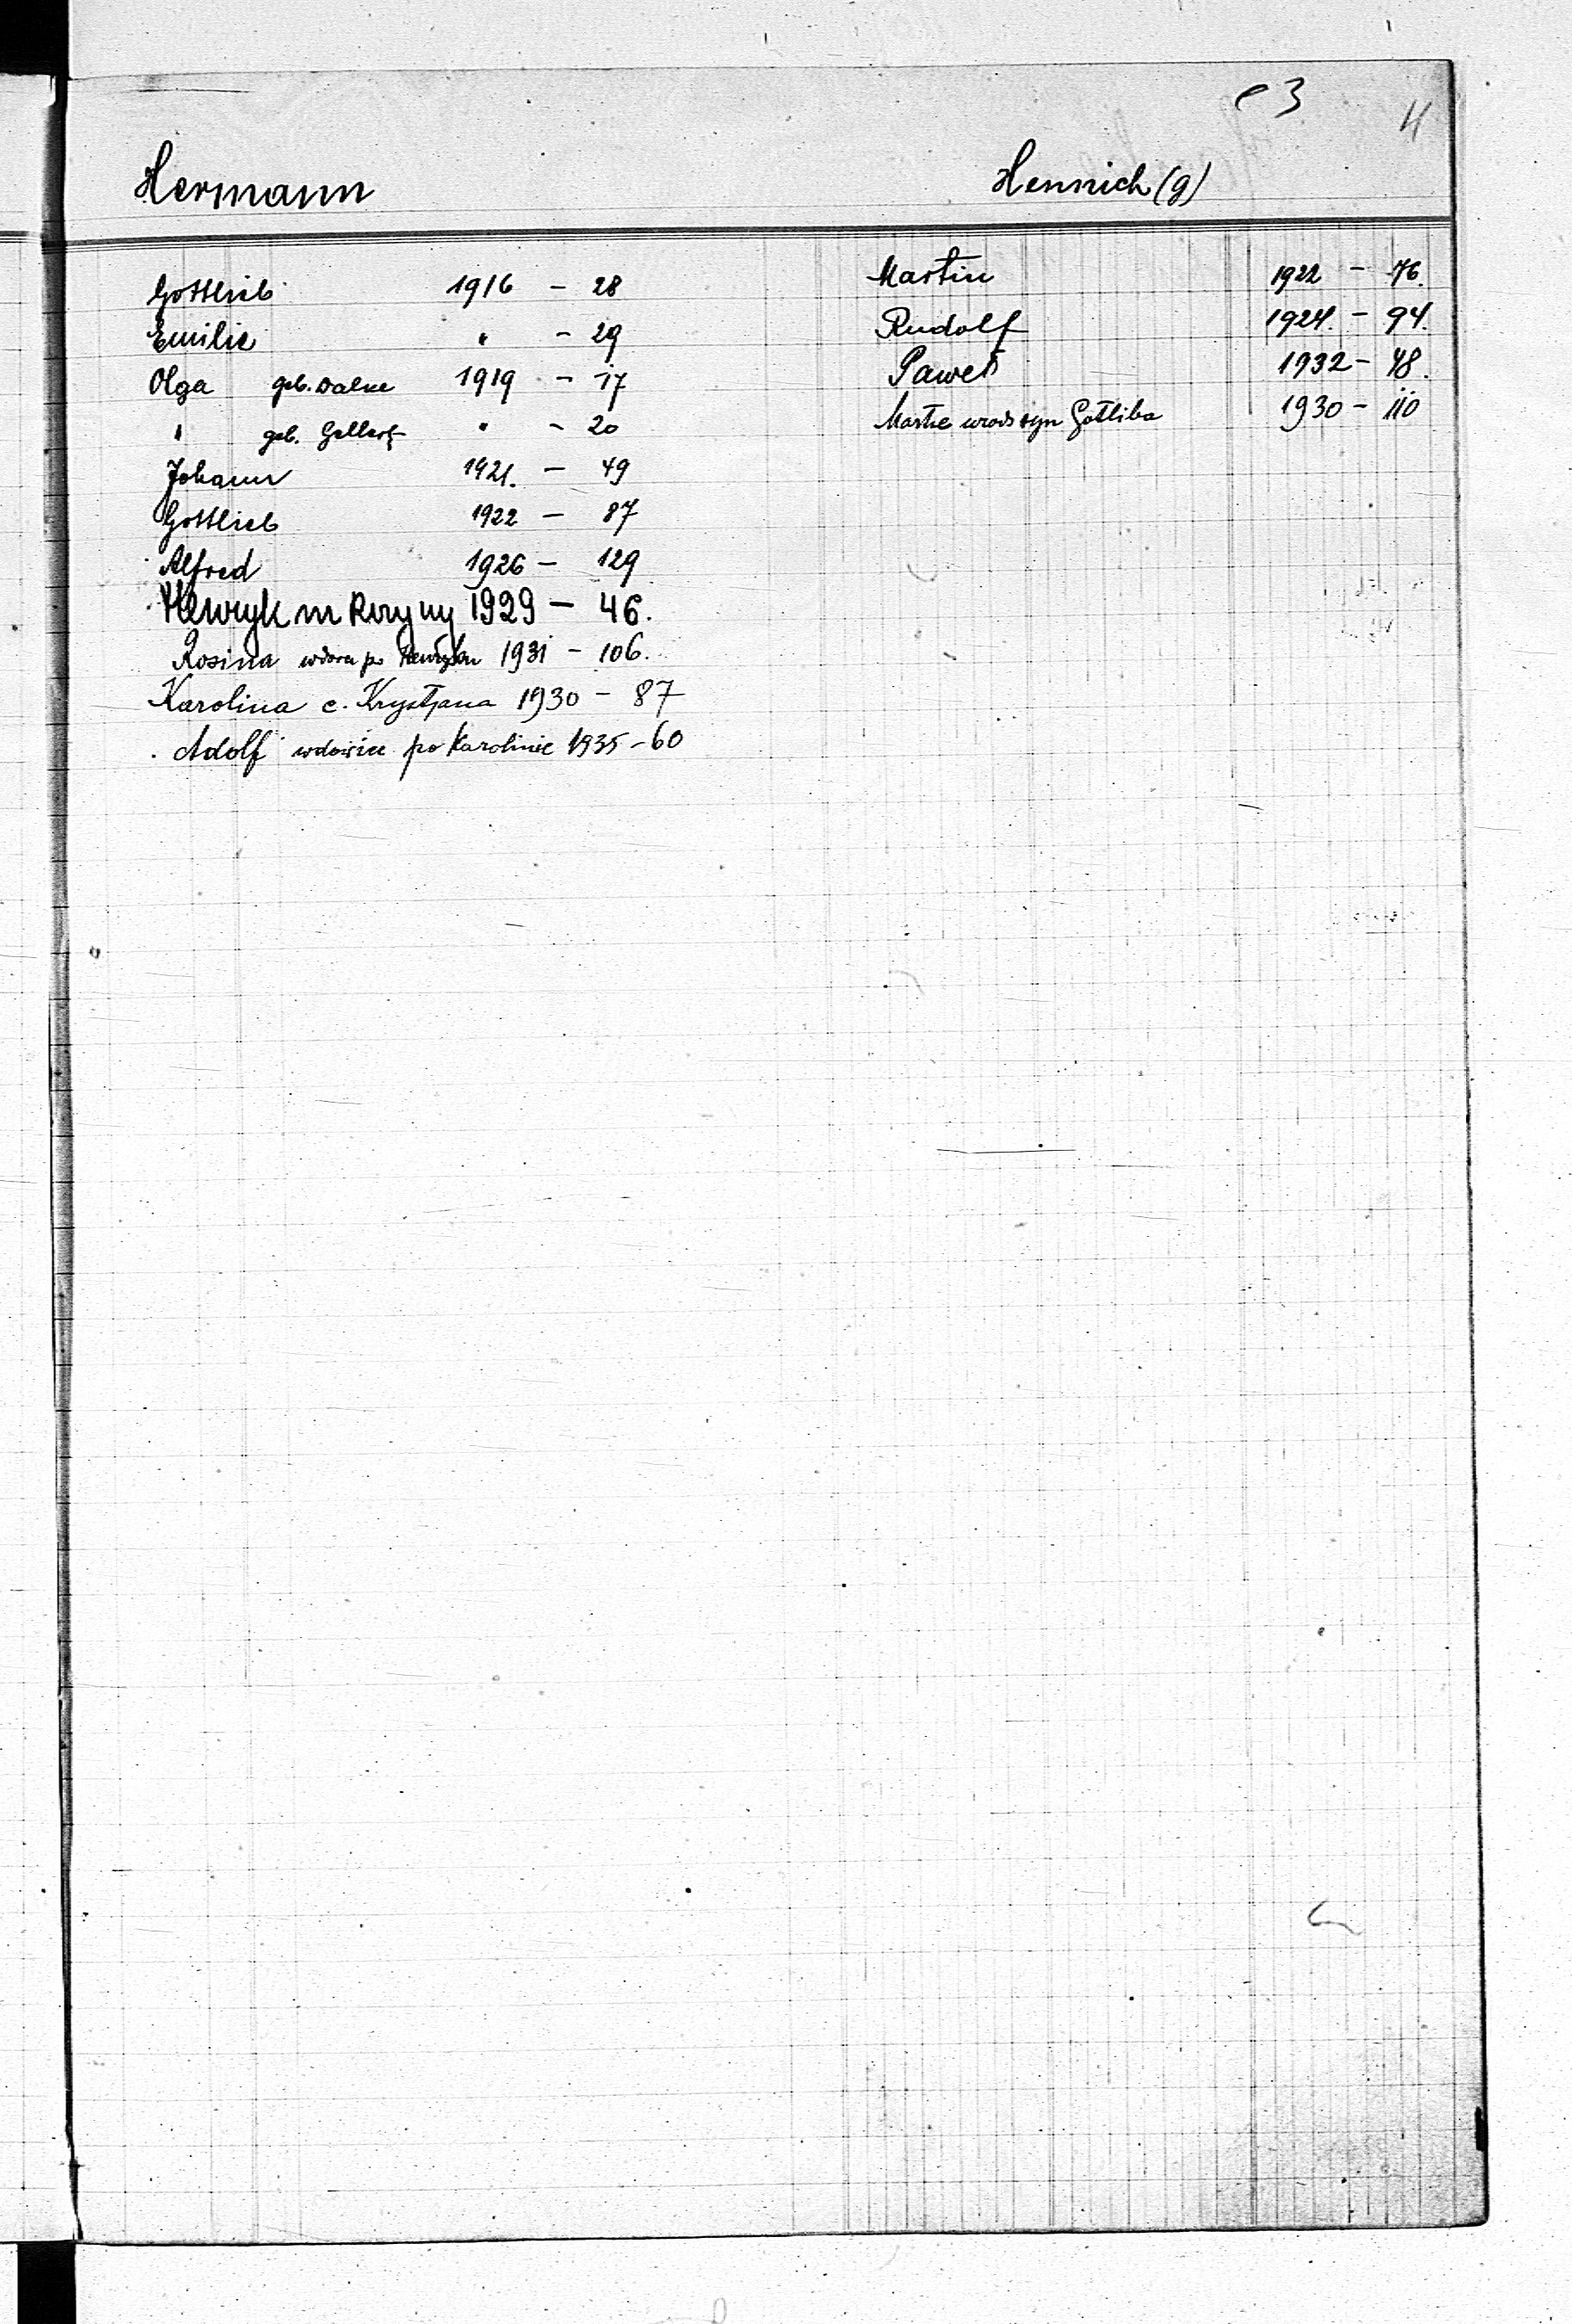 e 3
4
Hermann
Gottlieb 1916 - 28
Emilie " - 29
Olga geb. Dalke 1919 - 17
" geb. Gellert " - 20
Johann 1921. - 49
Gottlieb 1922 - 87
Alfred 1926 - 129
Henryk m Rozyny 1929 - 46.
Rosina wdowa po Henryku 1931 - 106.
Karolina c. Krystjana 1930 - 87
Adolf wdowiec po Karolinie 1935 - 60
Hennich (g)
Martin 1922 - 76.
Rudolf 1924. - 94.
Paweł 1932 - 48.
syn Gotliba 1930 - 110